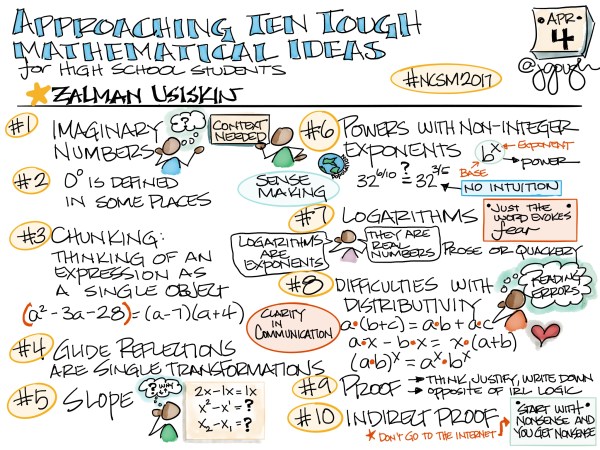 APPROACHING TEN TOUGH
MATHEMATICAL IDEAS
for HIGH SCHOOL STUDENTS
ZALMAN USISKIN
#NCSM2017
APR
4
@jgough
#1 IMAGINARY
NUMBERS
?
CONTEXT
NEEDED
#2 0⁰ IS DEFINED
IN SOME PLACES
SENSE
MAKING
#3 CHUNKING:
THINKING OF AN
EXPRESSION AS
A SINGLE OBJECT
(a²-3a-28)=(a-7)(a+4)
CLARITY
IN
COMMUNICATION
#4 GLIDE REFLECTIONS
ARE SINGLE TRANSFORMATIONS
#5 SLOPE
2x-1x=1x
x²-x'=?
x₂-x₁=?
#6 POWERS WITH NON-INTEGER
EXPONENTS
bˣ
EXPONENT
POWER
BASE
32^6/10 ?= 32^3/5
NO INTUITION
#7 LOGARITHMS
"JUST THE
WORD EVOKES
fear"
LOGARITHMS
ARE
EXPONENTS
THEY ARE
REAL
NUMBERS
PROSE OR QUACKERY
#8 DIFFICULTIES WITH
DISTRIBUTIVITY
READING
ERRORS
a•(b+c)=a•b+a•c
a•x-b•x=x•(a+b)
(a•b)ˣ=aˣ•bˣ
#9 PROOF → THINK, JUSTIFY, WRITE DOWN
→ OPPOSITE OF IRL LOGIC
#10 INDIRECT PROOF
DON'T GO TO THE INTERNET
"START WITH
NONSENSE AND
YOU GET NONSENSE"